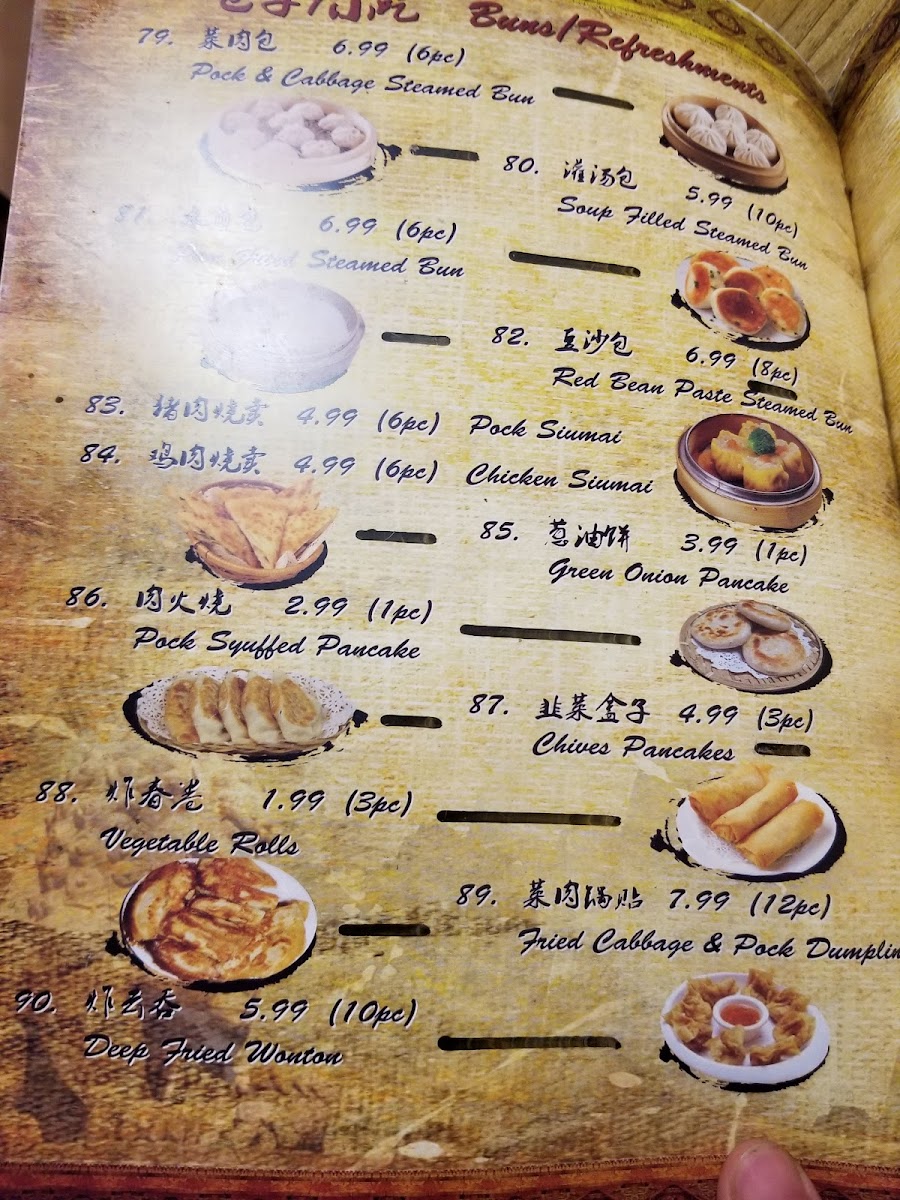 Buns/Refreshments
79. 菜肉包 6.99 (6pc)
Pock & Cabbage Steamed Bun
80. 灌汤包 5.99 (10pc)
Soup Filled Steamed Bun
81. 6.99 (6pc)
Steamed Bun
82. 豆沙包 6.99 (8pc)
Red Bean Paste Steamed Bun
83. 猪肉烧卖 4.99 (6pc) Pock Siumai
84. 鸡肉烧卖 4.99 (6pc) Chicken Siumai
85. 葱油饼 3.99 (1pc)
Green Onion Pancake
86. 肉火烧 2.99 (1pc)
Pock Syuffed Pancake
87. 韭菜盒子 4.99 (3pc)
Chives Pancakes
88. 炸春卷 1.99 (3pc)
Vegetable Rolls
89. 菜肉锅贴 7.99 (12pc)
Fried Cabbage & Pock Dumplin
90. 炸云吞 5.99 (10pc)
Deep Fried Wonton